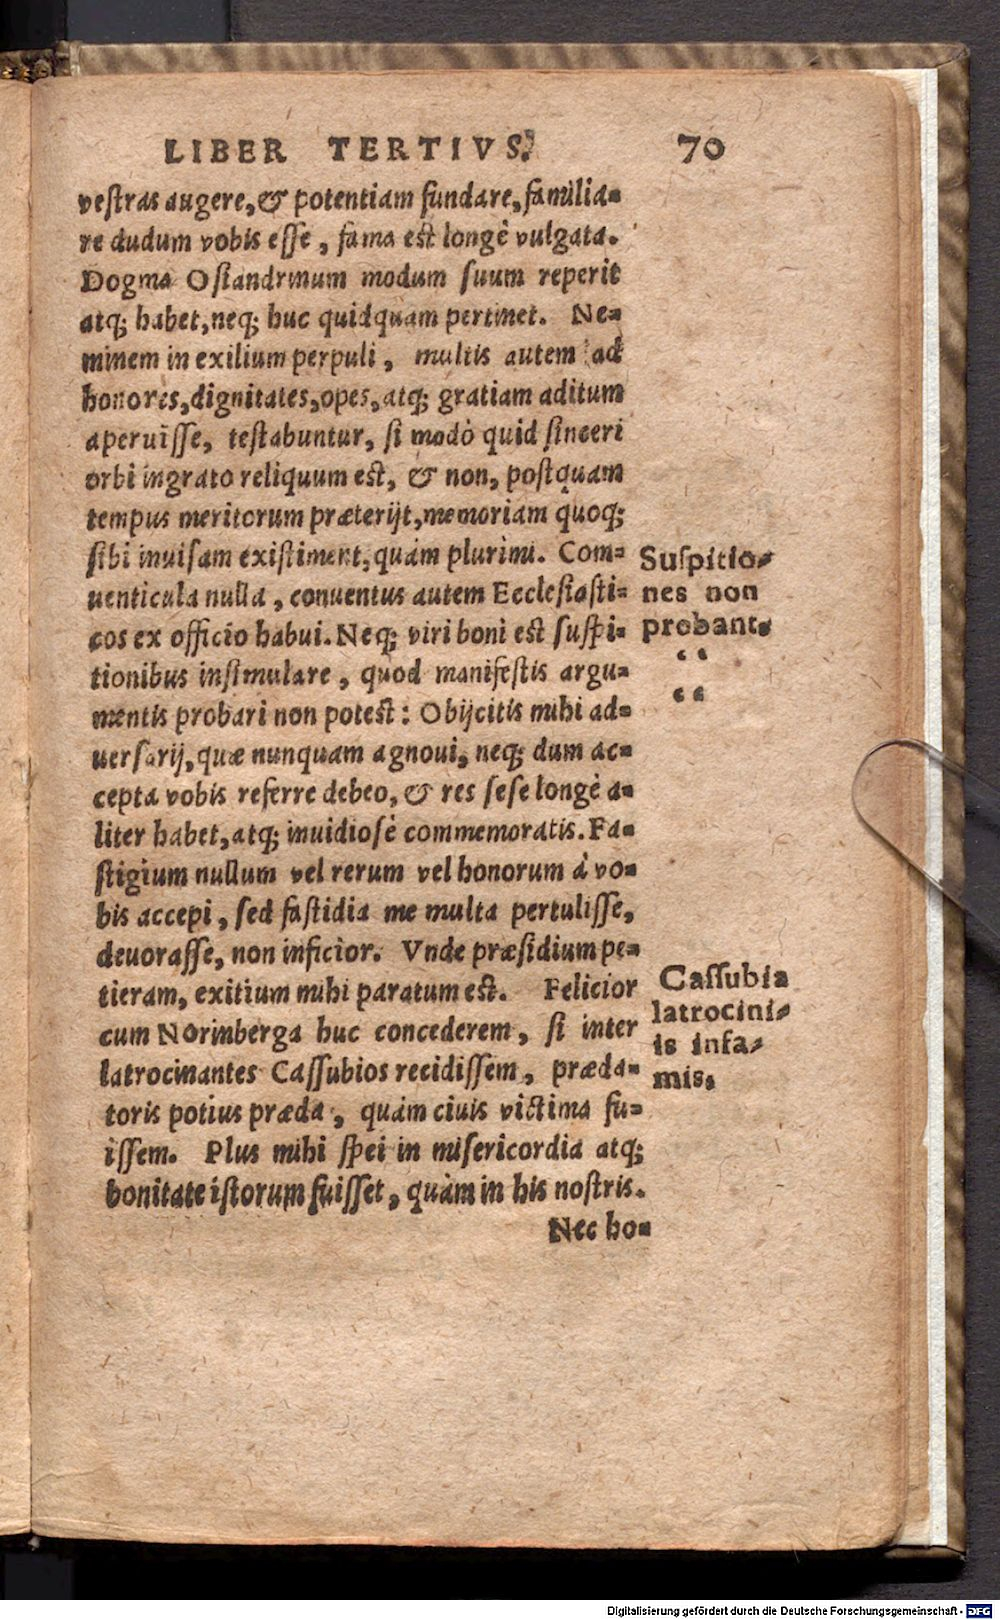 LIBER TERTIVS. 70
vestras augere, & potentiam fundare, familia-
re dudum vobis esse, fama est longè vulgata.
Dogma Osiandrinum modum suum reperit
atq; habet, neq; huc quidquam pertinet. Ne-
minem in exilium perpuli, multis autem ad
honores, dignitates, opes, atq; gratiam aditum
aperuisse, testabuntur, si modò quid sinceri
orbi ingrato reliquum est, & non, postquam
tempus meritorum præterijt, memoriam quoq;
sibi inuisam existiment, quàm plurimi. Com-
uenticula nulla, conuentus autem Ecclesiasti-
cos ex officio habui. Neq; viri boni est suspi-
tionibus insimulare, quod manifestis argu-
mentis probari non potest: Obijcitis mihi ad-
uersarij, quæ nunquam agnoui, neq; dum ac-
cepta vobis referre debeo, & res sese longè a-
liter habet, atq; inuidiosè commemoratis. Fa-
stigium nullum vel rerum vel honorum à vo-
bis accepi, sed fastidia me multa pertulisse,
deuorasse, non inficior. Vnde præsidium pe-
tieram, exitium mihi paratum est. Felicior
cum Norinberga huc concederem, si inter
latrocinantes Cassubios recidissem, præda-
toris potius præda, quàm ciuis victima fu-
issem. Plus mihi spei in misericordia atq;
bonitate istorum fuisset, quàm in his nostris.
Nec ho-
Suspitio-
nes non
probant.
“
“
Cassubia
latrocini-
is infa-
mis.
Digitalisierung gefördert durch die Deutsche Forschungsgemeinschaft - DFG